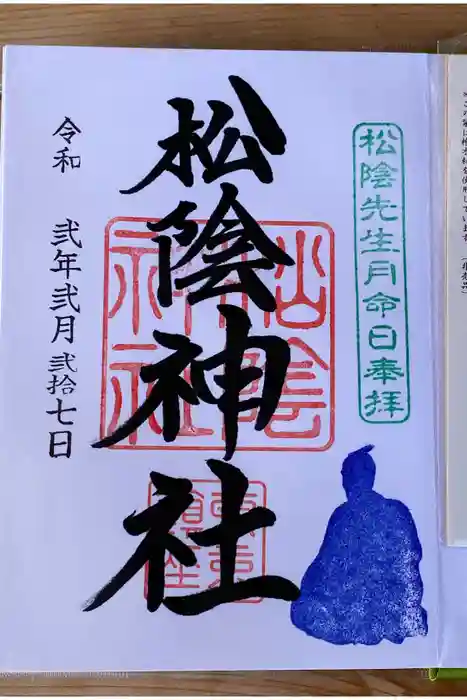 松陰先生月命日奉拝
松陰神社
松陰神社
令和 弐年弐月弐拾七日